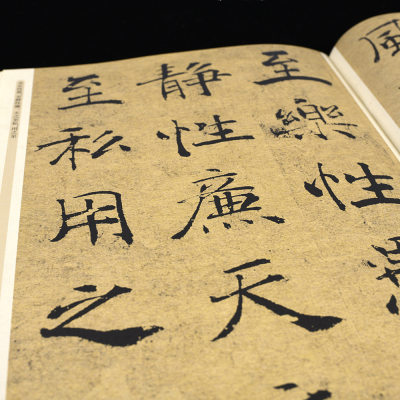 風
至樂性
靜性廉天
至私用之